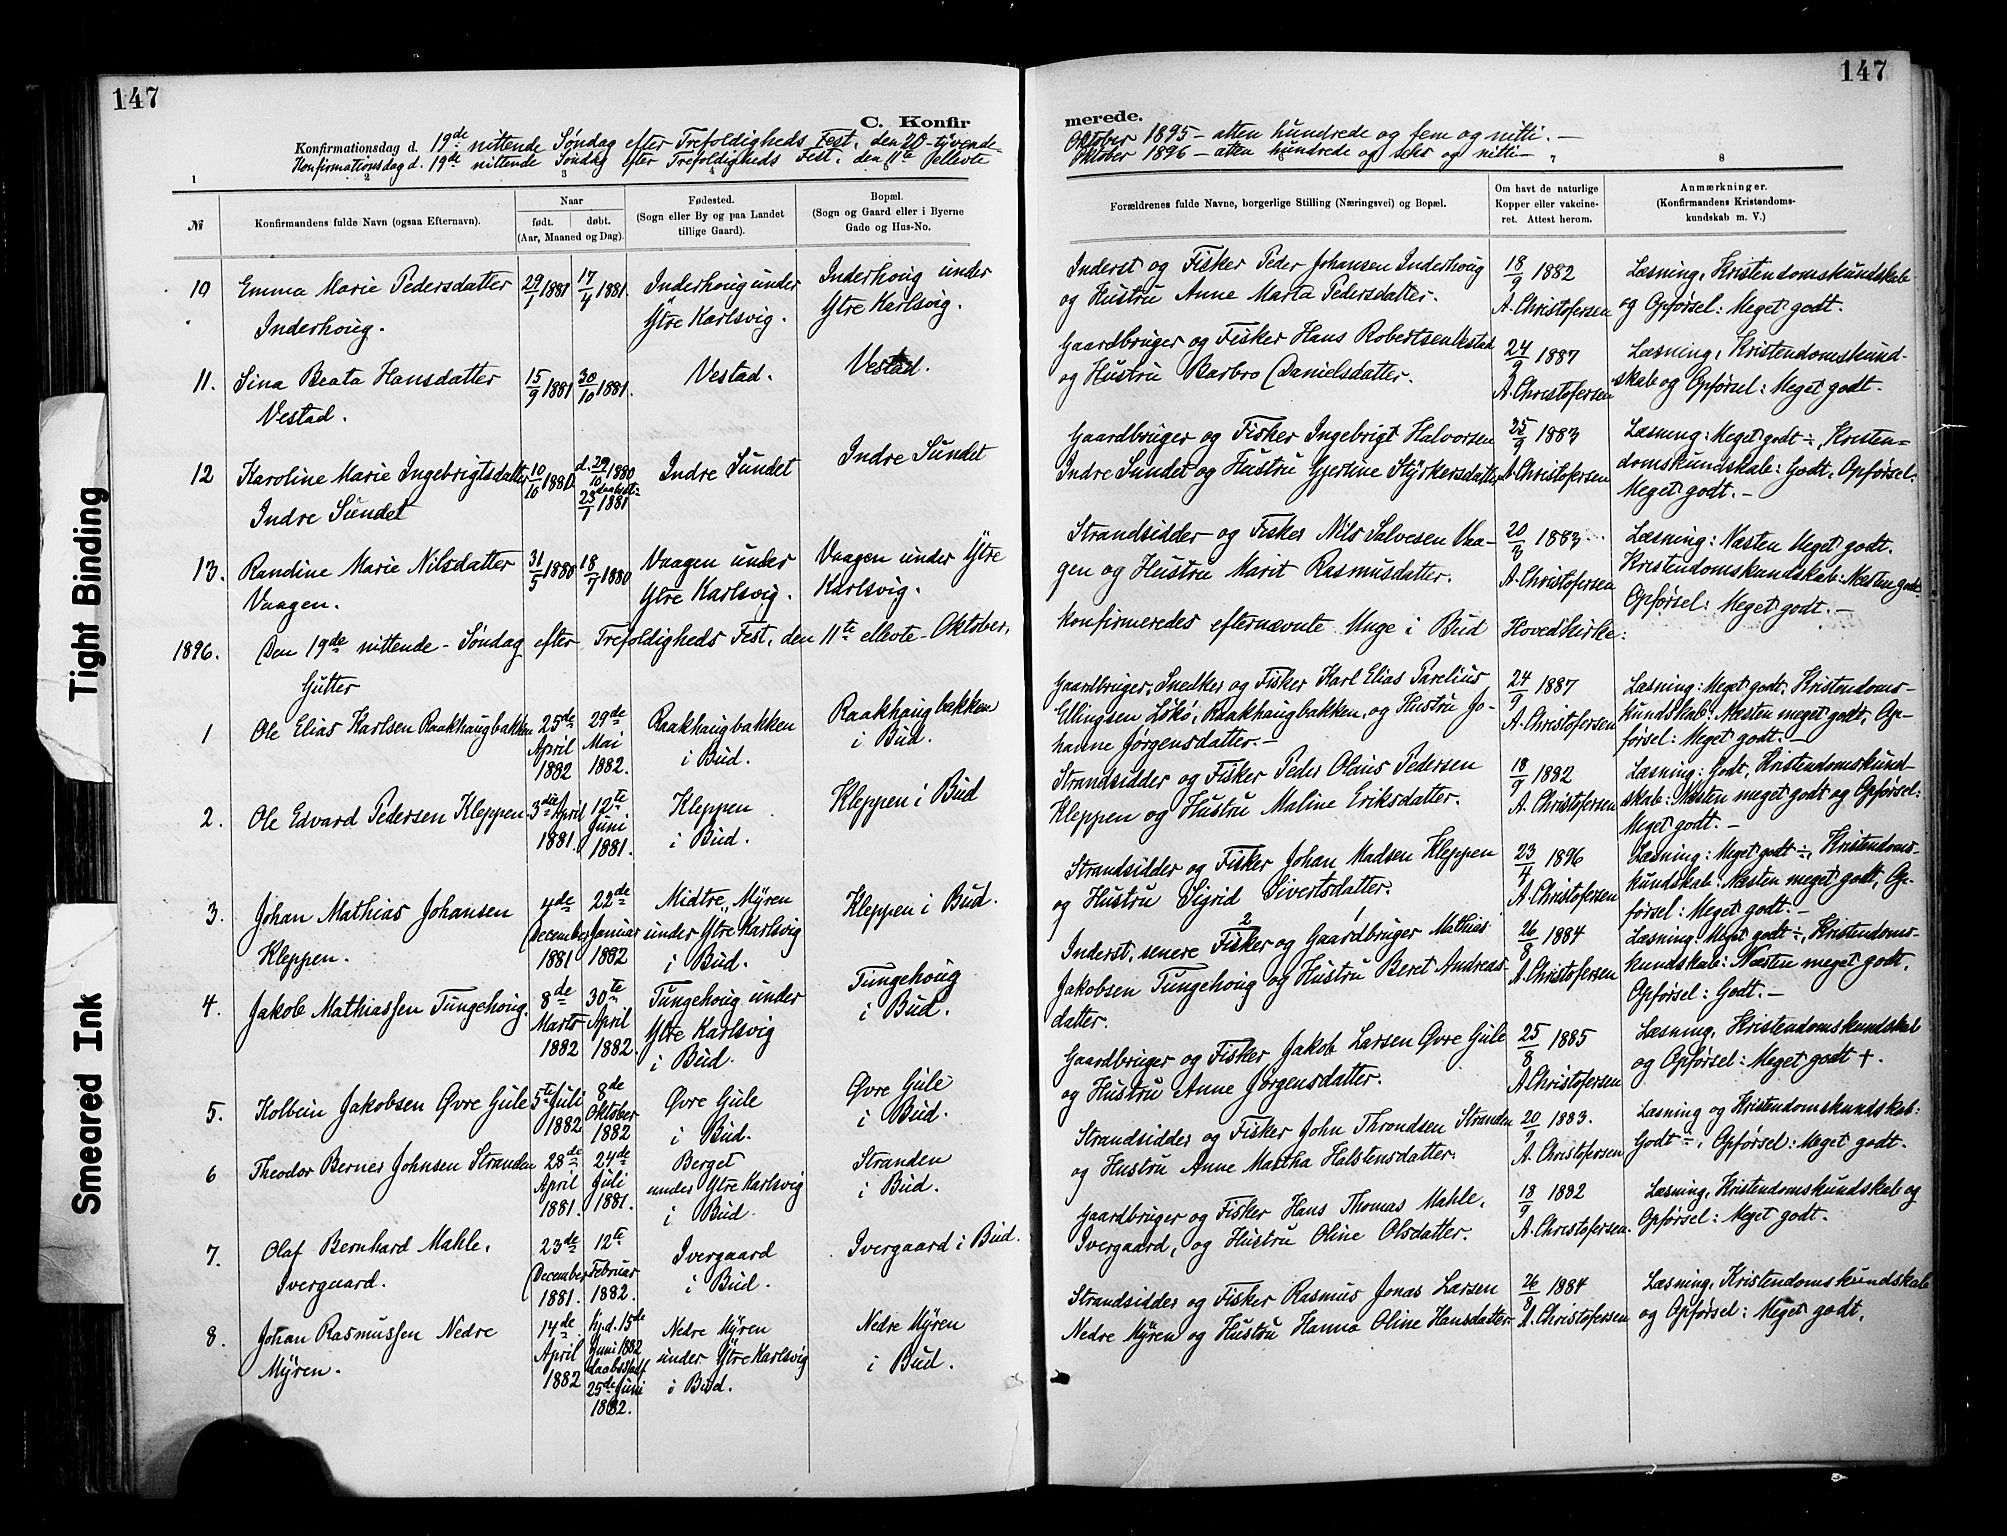 147
147
C. Konfirmerede.
Konfirmationsdag d. 19de nittende Søndag efter Trefoldigheds Fest, den 20-tyvende- Oktober 1895 - atten hundrede og fem og nitti. -
Konfirmationsdag d. 19de nittende Søndag efter Trefoldigheds Fest, den 11te ellevte Oktober 1896 - atten hundrede og seks og nitti -
1 2 3 4 5 8
№
Konfirmandens fulde Navn (ogsaa Efternavn).
Naar
født. døbt.
(Aar, Maaned og Dag).
Fødested.
(Sogn eller By og paa Landet
tillige Gaard).
Bopæl.
(Sogn og Gaard eller i Byerne
Gade og Hus-No.
Forældrenes fulde Navne, borgerlige Stilling (Næringsvei) og Bopæl.
Om havt de naturlige
Kopper eller vakcine-
ret. Attest herom.
Anmærkninger.
(Konfirmandens Kristendoms-
kundskab m. V.)
10 Emma Marie Pedersdatter
Inderhoug.
29/1 1881 17/4 1881.
Inderhoug under
Ytre Karlsvig.
Inderhoug under
Ytre Karlsvig.
Inderst og Fisker Peder Johansen Inderhoug
og Hustru Anne Marta Pedersdatter.
18/9 1882
A. Christofersen
Læsning, Kristendomskundskab
og Opførsel: Meget godt.
11. Sina Beata Hansdatter
Vestad.
15/9 1881 30/10 1881.
Vestad.
Vestad.
Gaardbruger og Fisker Hans Robertsen Vestad
og Hustru Barbro Danielsdatter.
24/9 1887
A. Christofersen
Læsning, Kristendomskund-
skab og Opførsel: Meget godt.
12 Karoline Marie Ingebrigtsdatter
Indre Sundet
10/10 1880
d. 29/10 1880
23/1 1881
Indre Sundet
Indre Sundet
Gaardbruger og Fisker Ingebrigt Halvorsen
Indre Sundet og Hustru Gjertine Styrkersdatter
25/9 1883
A. Christofersen
Læsning: Meget godt ÷, Kristen=
domskundskab: Godt, Opførsel:
Meget godt. -
13. Randine Marie Nilsdatter
Vaagen.
31/5 1880 18/7 1880
Vaagen under
Ytre Karlsvig.
Vaagen under Ytre
Karlsvig.
Strandsidder og Fisker Nils Salvesen Vaa-
gen og Hustru Marit Rasmusdatter.
20/3 1883
A. Christofersen
Læsning: Næsten Meget godt.
Kristendomskundskab: Næsten godt
Opførsel: Meget godt. -
1896. Den 19de nittende - Søndag efter Trefoldigheds Fest, den 11te ellevte - Oktober, konfirmeredes efternævnte Unge i Bud Hovedkirke:
Gutter
1 Ole Elias Karlsen Raakhaugbakken
25de
April
1882
29de
Mai
1882.
Raakhaugbakken
i Bud.
Raakhaugbakken
i Bud.
Gaardbruger, Snedker og Fisker Karl Elias Parelius
Ellingsen Lökö, Raakhaugbakken, og Hustru Jo-
hanne Jørgensdatter. -
24/9 1887
A. Christofersen
Læsning: Meget godt, Kristendoms-
kundskab: Næsten meget godt, Op-
førsel: Meget godt.
2. Ole Edvard Pedersen Kleppen
3die April
1881.
12te
Juni
1881.
Kleppen
i Bud.
Kleppen i Bud
Strandsidder og Fisker Peder Olaus Pedersen
Kleppen og Hustru Maline Eriksdatter.
18/9 1882
A. Christofersen
Læsning: Godt, Kristendomskund
skab: Næsten meget godt og Opførsel:
Meget godt. -
3. Johan Mathias Johansen
Kleppen.
4de
December
1881
22de
Januar
1882
Midtre Myren
under Ytre Karlsvig
i Bud.
Kleppen i Bud.
Strandsidder og Fisker Johan Madsen Kleppen
og Hustru Sigrid Sivertsdatter.
23/4 1896
A. Christofersen
Læsning: Meget godt ÷, Kristendoms-
kundskab: Næsten meget godt, Op-
førsel: Meget godt. -
4. Jakob Mathiassen Tungehoug.
8de
Marts
1882
30te
April
1882.
Tungehoug under
Ytre Karlsvig
i Bud.
Tungehoug
i Bud.
2 1
Inderst, senere Fisker og Gaardbruger Mathias
Jakobsen Tungehoug og Hustru Beret Andreas-
datter.
26/8 1884
A. Christofersen
Læsning: Meget godt ÷, Kristendoms-
kundskab: Næsten meget godt,
Opførsel: Godt. -
5. Kolbein Jakobsen Øvre Gule
5te Juli
1882
8de
Oktober
1882
Øvre Gule
i Bud.
Øvre Gule
i Bud.
Gaardbruger og Fisker Jakob Larsen Øvre Gule
og Hustru Anne Jørgensdatter.
25/8 1885
A. Christofersen
Læsning, Kristendomskundskab
og Opførsel: Meget godt +.
6 Theodor Berner Johnsen Stranden
28de
April
1881.
24de
Juli
1881.
Berget
under Ytre Karlsvig
i Bud.
Stranden
i Bud.
Strandsidder og Fisker John Throndsen Stranden
og Hustru Anne Martha Halstensdatter.
20/9 1883.
A. Christofersen
Læsning og Kristendomskundskab:
Godt ÷, Opførsel: Meget godt.
7. Olaf Bernhard Mahle,
Ivergaard.
23de
December
1881.
12te
Februar
1882.
Ivergaard
i Bud.
Ivergaard i Bud.
Gaardbruger og Fisker Hans Thomas Mahle,
Ivergaard, og Hustru Oline Olsdatter.
18/9 1882
A. Christofersen.
Læsning, Kristendomskundskab og
Opførsel: Meget godt.
8. Johan Rasmussen Nedre
Myren.
14de
April
1882
Hj. d. 15de
Juni 1882
25de Juni
1882.
Nedre Myren
under Ytre Karlsvig
i Bud.
Nedre Myren
i Bud.
Strandsidder og Fisker Rasmus Jonas Larsen
Nedre Myren og Hustru Hanna Oline Hansdatter
26/8 1884
A. Christofersen
Læsning, Kristendomskundskab
og Opførsel: Meget godt.
Tight Binding
Smeared Ink